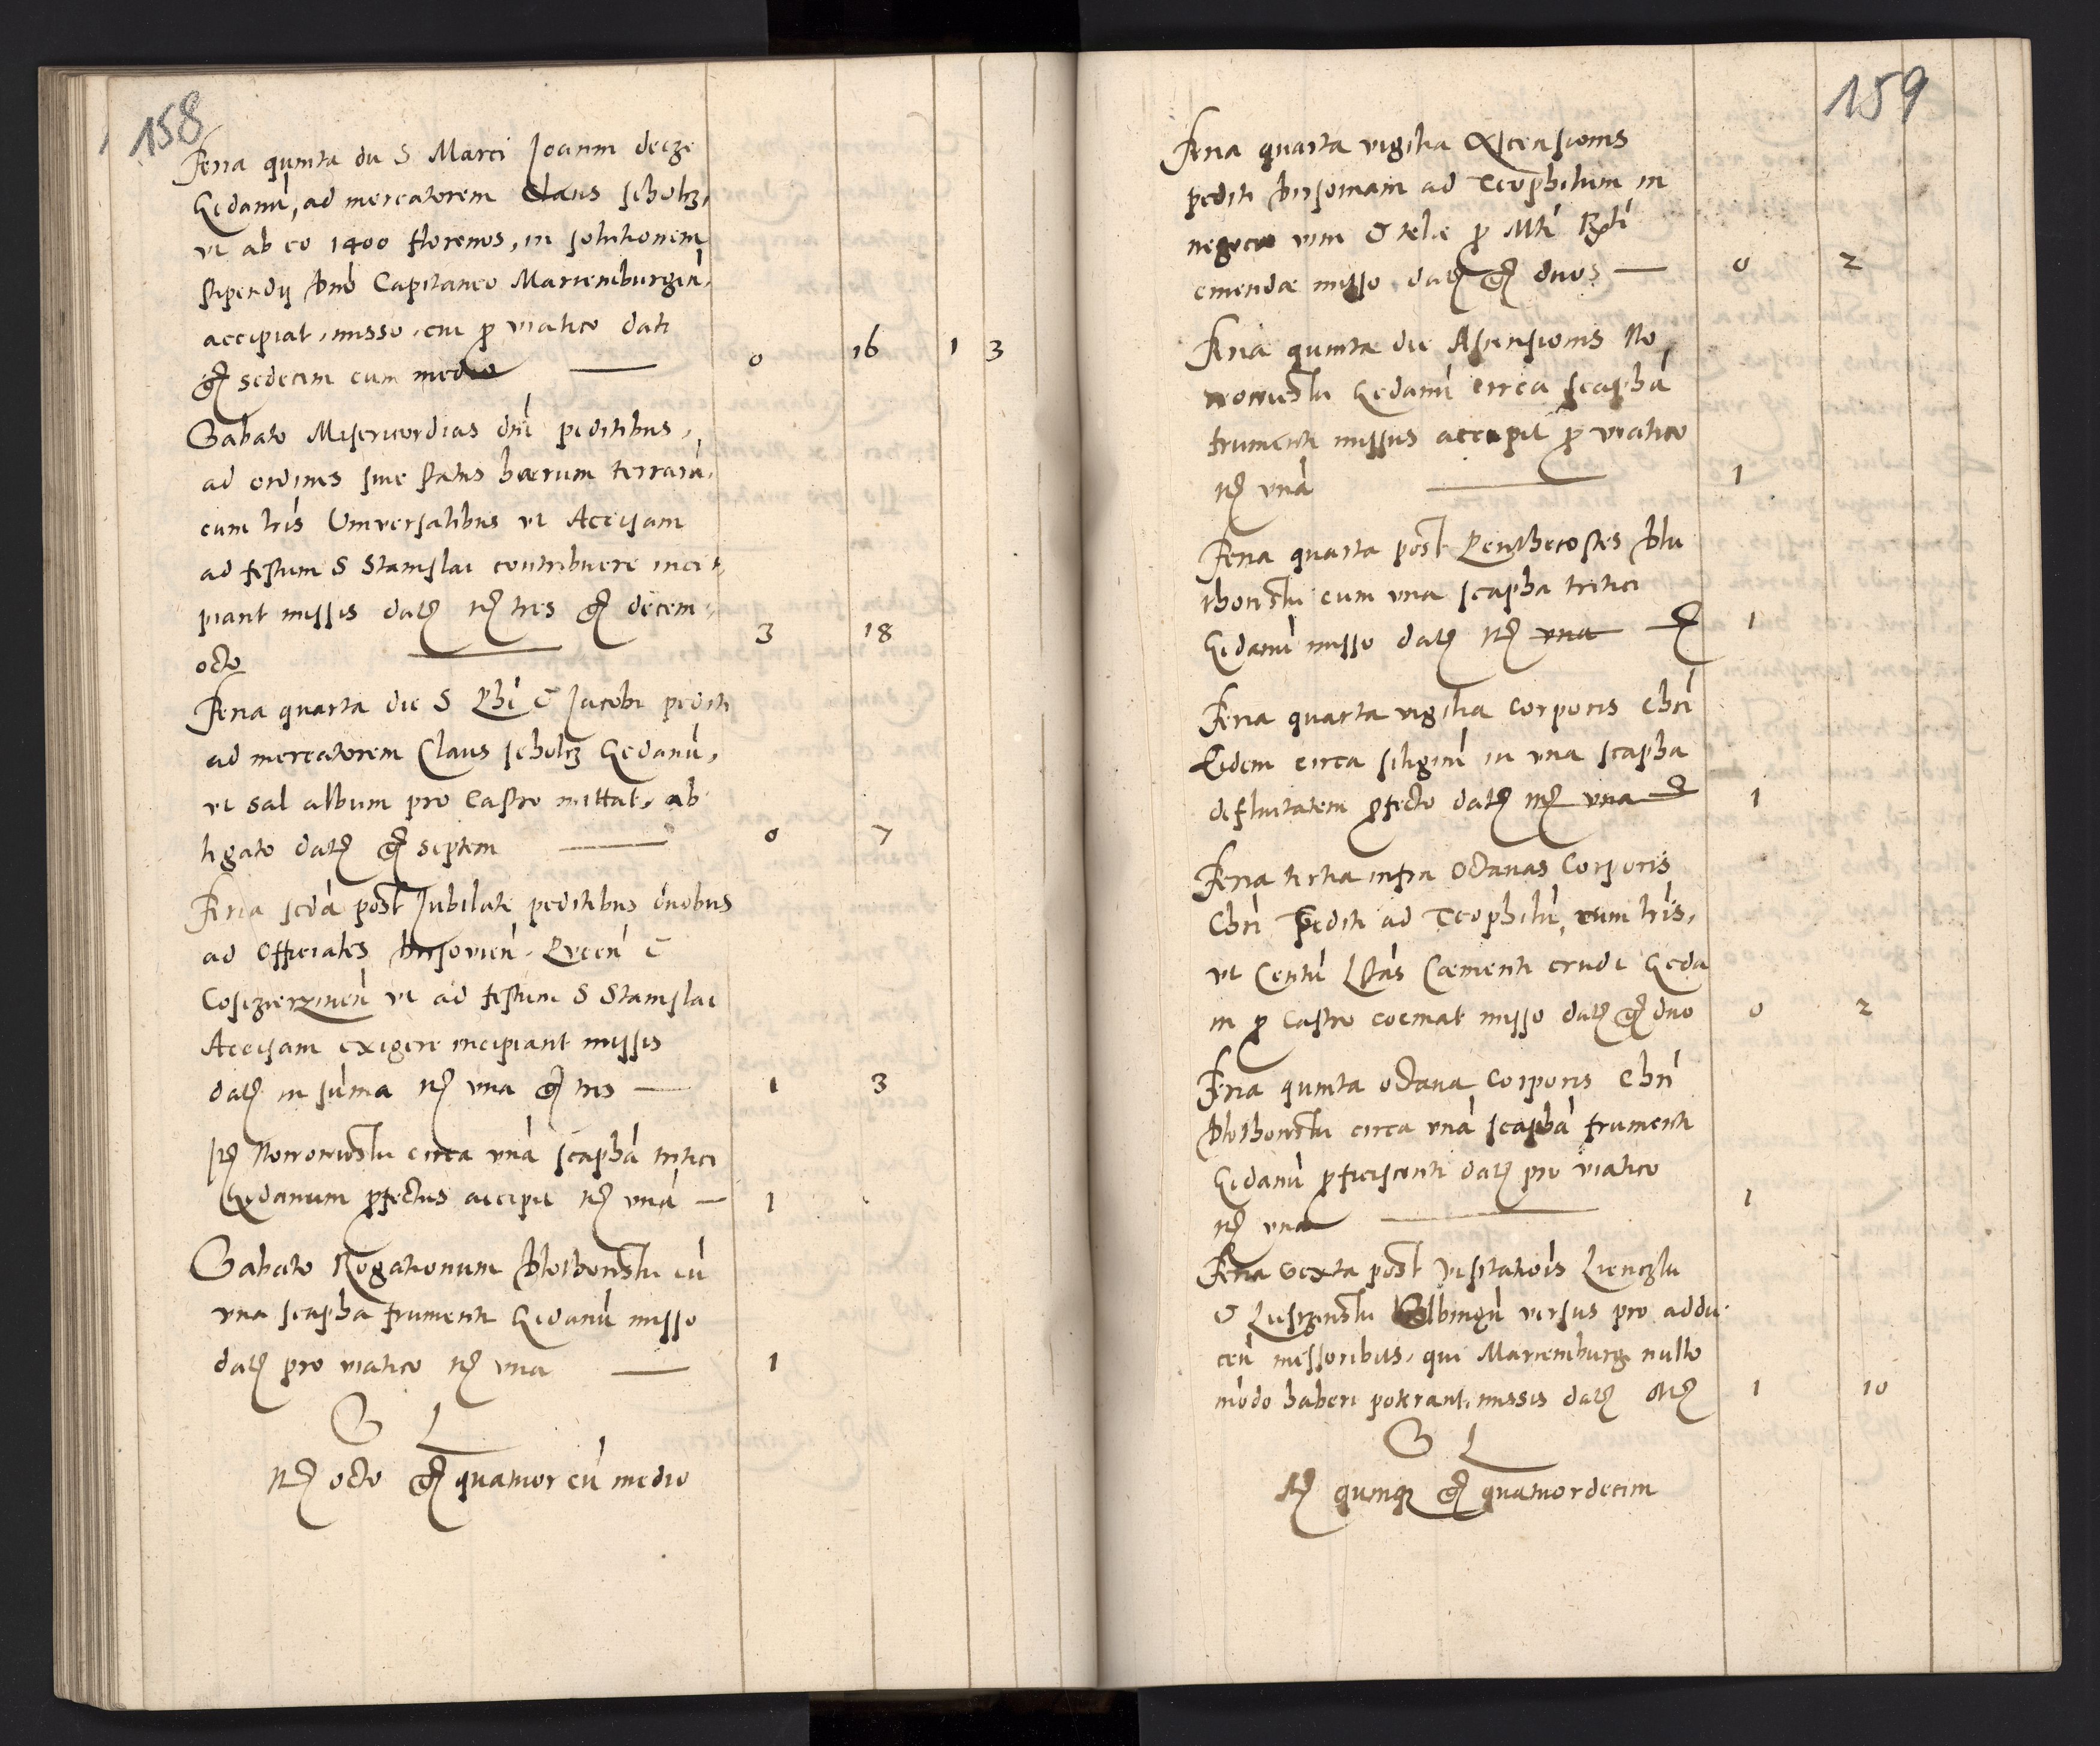 158
Feria quinta die S Marci Joanni decze
Gedanū, ad mercatorem Claus scholcz,
vt ab eo 1400 florenos, in solutionem
stipendij Dnō Capitaneo Mariemburgeñ,
accipiat, misso, cui p viatico dati
gř sedecim cum medio — 0 16 1 3
Sabato Misericordias dñi peditibus,
ad ordines siue status harum terrarū,
cum lrīs Vniversalibus vt Accisam
ad festum S Stanislai contribuere inci
piant missis datę mř tres gř decem
octo — 3 18
Feria quarta die S Phī & Jacobi pediti
ad mercatorem Claus scholcz Gedanū,
vt sal album pro Castro mittat, ab
legato datę gř septem — 0 7
Feria scdā post Jubilate peditibus duobus
ad Officiales
Coscierzineñ vt ad festum S Stanislai
Accisam exigere incipiant missis
datę in sūma mř vna gř tres — 1 3
Itę Nowowieski circa vnā scaphā tritici
Gedanum pfectus accipit mř vnā — 1
Sabato Rogationum cū
vna scapha frumenti Gedanū misso
datę pro viatico mř vna — 1
S L
mř octo gř quatuor cū medio
159
Feria quarta vigilia Ascensionis
pediti ad Teophilum in
negocio vini & telæ p Mtī Rgtī
emendæ misso, datę gř duos — 0 2
Feria quinta die Ascensionis No
wowieski Gedanū circa scaphā
frumenti missus accepit p viatico
mř vnā — 1
Feria quarta post Penthecostes Blu
cum vna scapha tritici
Gedanū misso datę mř vna — 1
Feria quarta vigilia Corporis Chrī
Eidem circa siliginē in vna scapha
defluitatem pfecto datę mř vna — 1
Feria tertia infra Octauas Corporis
Chrī Pediti ad Teophilū, cum lrīs,
vt Centū Lstās Cæmenti crudi Geda
ni p Castro coemat misso datę gř duo 0 2
Feria quinta octaua Corporis Chrī
circa vnā scaphā frumenti
Gedanū pficiscenti datę pro viatico
mř vna — 1
Feria sexta post Visitatiōis
& Elbingū versus pro addu
ceñ messoribus, qui Mariemburgę nullo
modo haberi poterant, missis datę mř 1 10
S L
mř quinqȝ gř quatuordecim